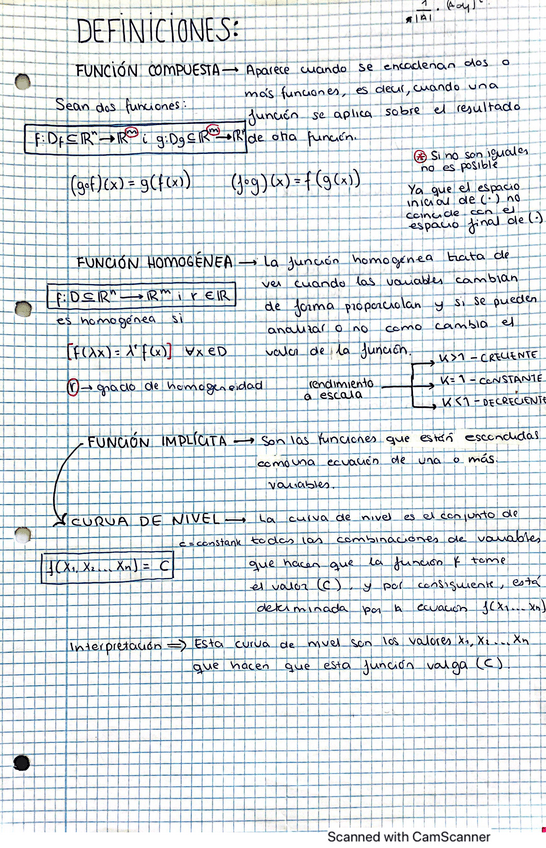 DEFINICIONES:
FUNCIÓN COMPUESTA → Aparece cuando se encadenan dos o
más funciones, es decir, cuando una
función se aplica sobre el resultado
de otra función.
Sean dos funciones:
f: Df ⊆ ℝⁿ → ℝᵐ i g: Dg ⊆ ℝᵐ → ℝ
(g∘f)(x) = g(f(x)) (f∘g)(x) = f(g(x))
* Si no son iguales
no es posible
Ya que el espacio
inicial de (·) no
coincide con el
espacio final de (·)
FUNCIÓN HOMOGÉNEA → La función homogénea trata de
ver cuando las variables cambian
de forma proporciolan y si se pueden
analizar o no como cambia el
valor de la función.
f: D ⊆ ℝⁿ → ℝᵐ i r ∈ ℝ
es homogénea si
[f(λx) = λʳ f(x)] ∀x∈D
r → grado de homogeneidad
rendimiento
a escala
K>1 - CRECIENTE
K=1 - CONSTANTE
K<1 - DECRECIENTE
FUNCIÓN IMPLÍCITA → Son las funciones que están escondidas
como una ecuación de una o más
variables.
CURVA DE NIVEL → La curva de nivel es el conjunto de
todas las combinaciones de variables
que hacen que la función f tome
el valor (C), y por consiguiente, está
determinada por la ecuación f(x₁...xₙ)
c=constant
f(x₁, x₂... xₙ) = C
Interpretación ⇒ Esta curva de nivel son los valores x₁, x₂... xₙ
que hacen que esta función valga (C).
Scanned with CamScanner